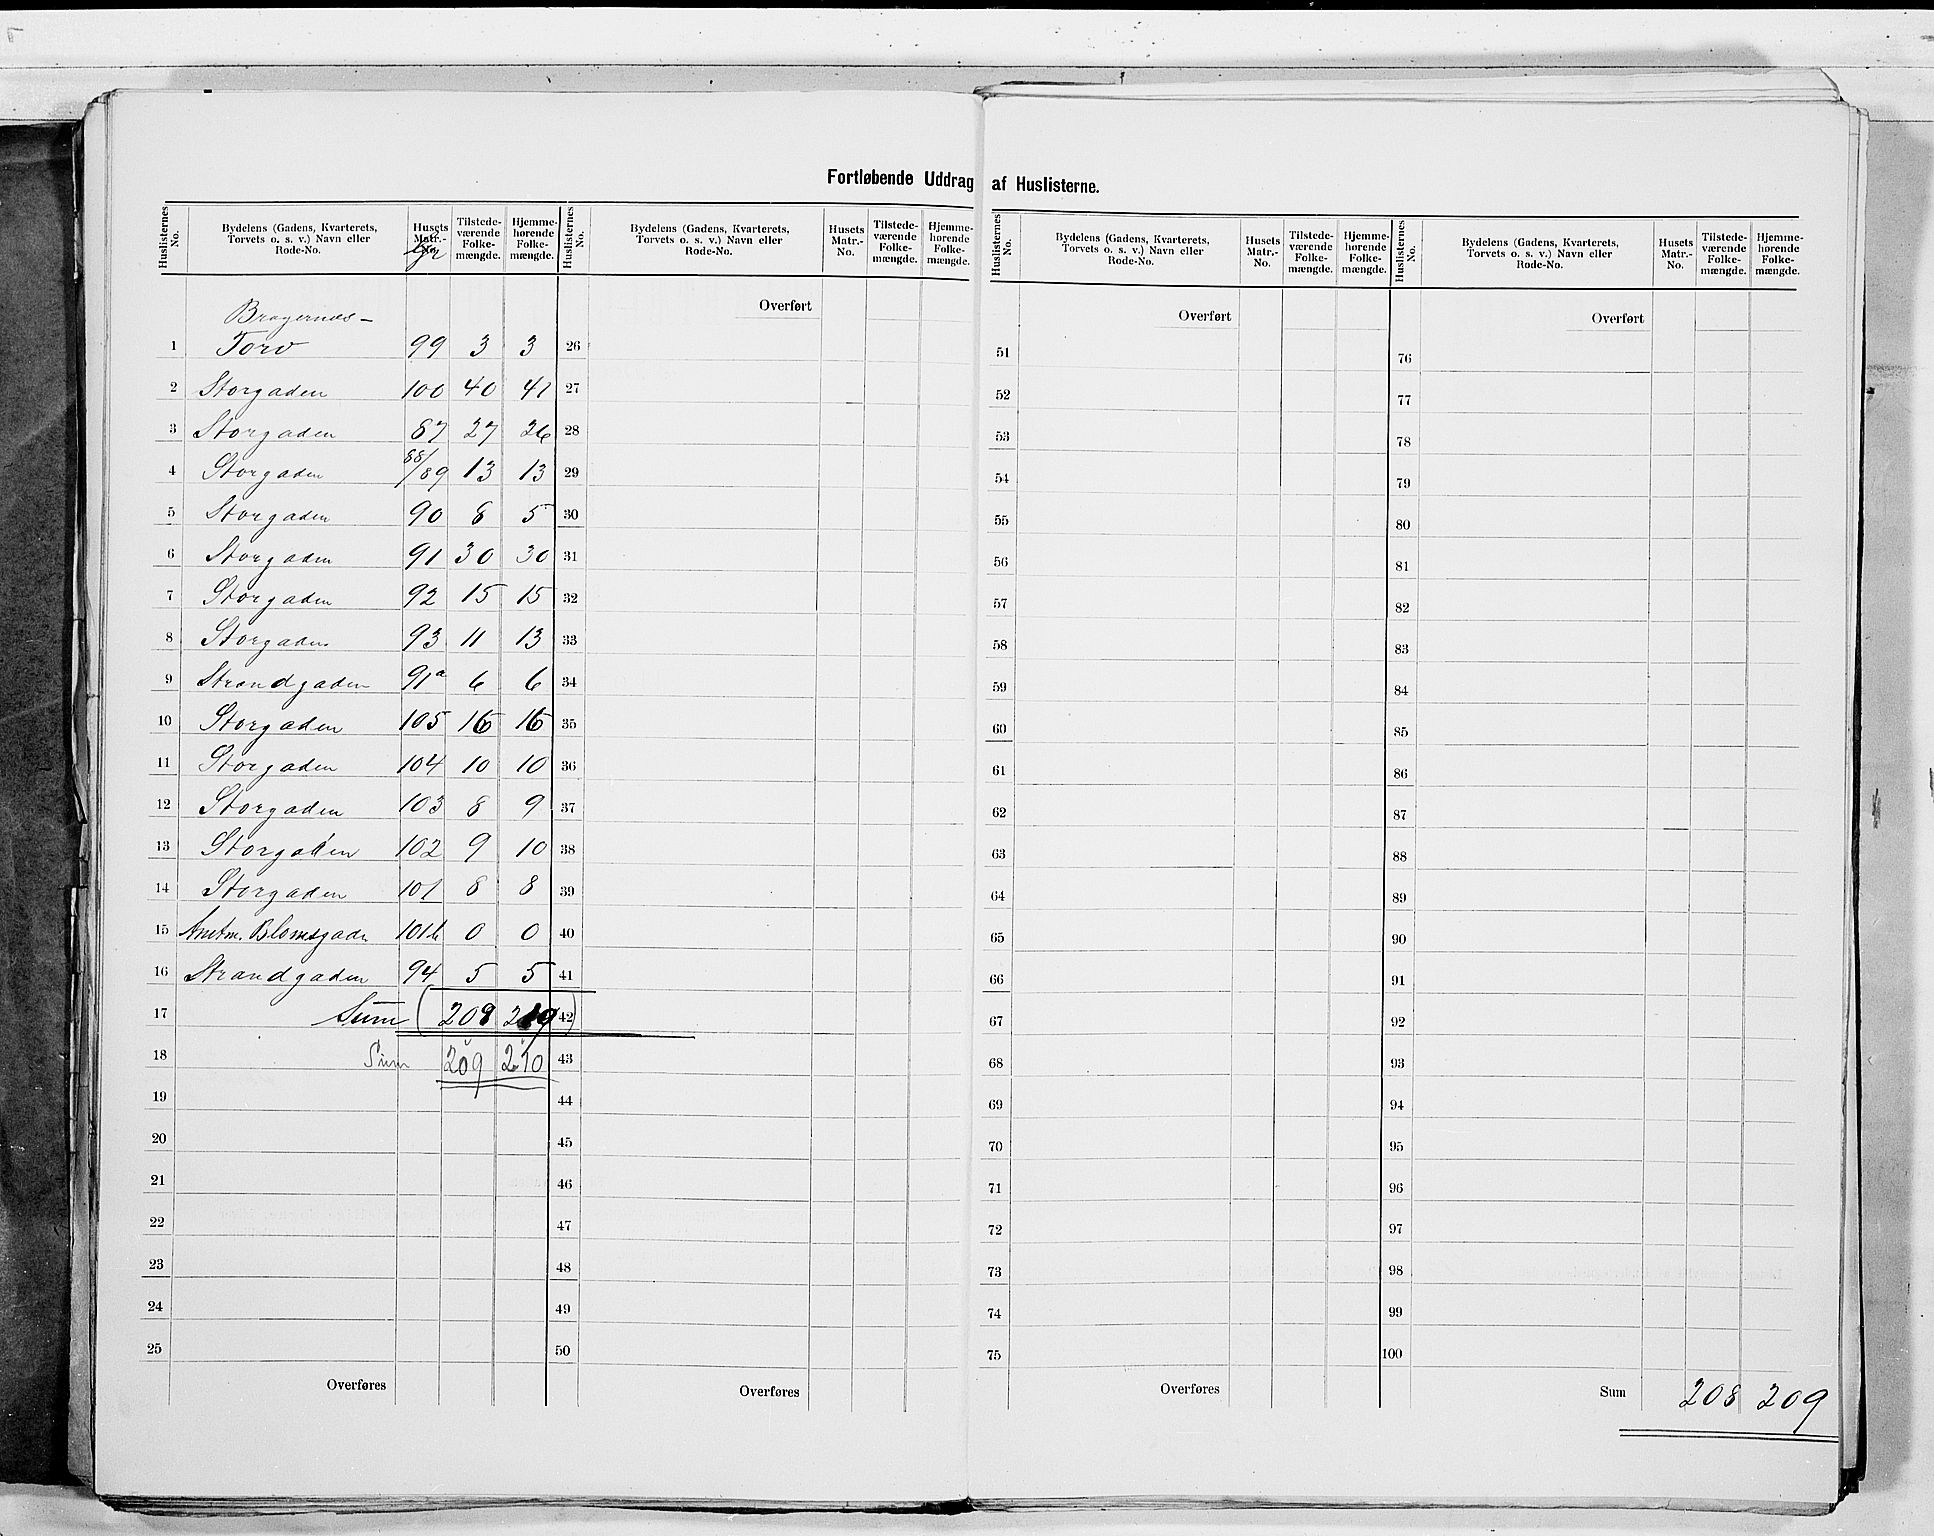 Fortløbende Uddrag af Huslisterne.
Huslisternes No. | Bydelens (Gadens, Kvarterets, Torvets o. s. v.) Navn eller Rode-No. | Husets Matr.- | Tilstedeværende Folkemængde. | Hjemmehørende Folkemængde.
Bragernes-
1 Torv 99 3 3
2 Storgaden 100 40 41
3 Storgaden 87 27 26
4 Storgaden 88/89 13 13
5 Storgaden 90 8 5
6 Storgaden 91 30 30
7 Storgaden 92 15 15
8 Storgaden 93 11 13
9 Strandgaden 91a 6 6
10 Storgaden 105
11 Storgaden 104 10 10
12 Storgaden 103 8 9
13 Storgaden 102 9 10
14 Storgaden 101 8 8
15 Amtm. Blomsgade 101b 0 0
16 Strandgaden 94 5 5
17 Sum (208
18 Sum 209 210
19
20
21
22
23
24
25
Overføres
Huslisternes No. | Bydelens (Gadens, Kvarterets, Torvets o. s. v.) Navn eller Rode-No. | Husets Matr.-No. | Tilstedeværende Folkemængde. | Hjemmehørende Folkemængde.
Overført
26
27
28
29
30
31
32
33
34
35
36
37
38
39
40
41
42
43
44
45
46
47
48
49
50
Overføres
Huslisternes No. | Bydelens (Gadens, Kvarterets, Torvets o. s. v.) Navn eller Rode-No. | Husets Matr.-No. | Tilstedeværende Folkemængde. | Hjemmehørende Folkemængde.
Overført
51
52
53
54
55
56
57
58
59
60
61
62
63
64
65
66
67
68
69
70
71
72
73
74
75
Overføres
Huslisternes No. | Bydelens (Gadens, Kvarterets, Torvets o. s. v.) Navn eller Rode-No. | Husets Matr.-No. | Tilstedeværende Folkemængde. | Hjemmehørende Folkemængde.
Overført
76
77
78
79
80
81
82
83
84
85
86
87
88
89
90
91
92
93
94
95
96
97
98
99
100
Sum 208 209